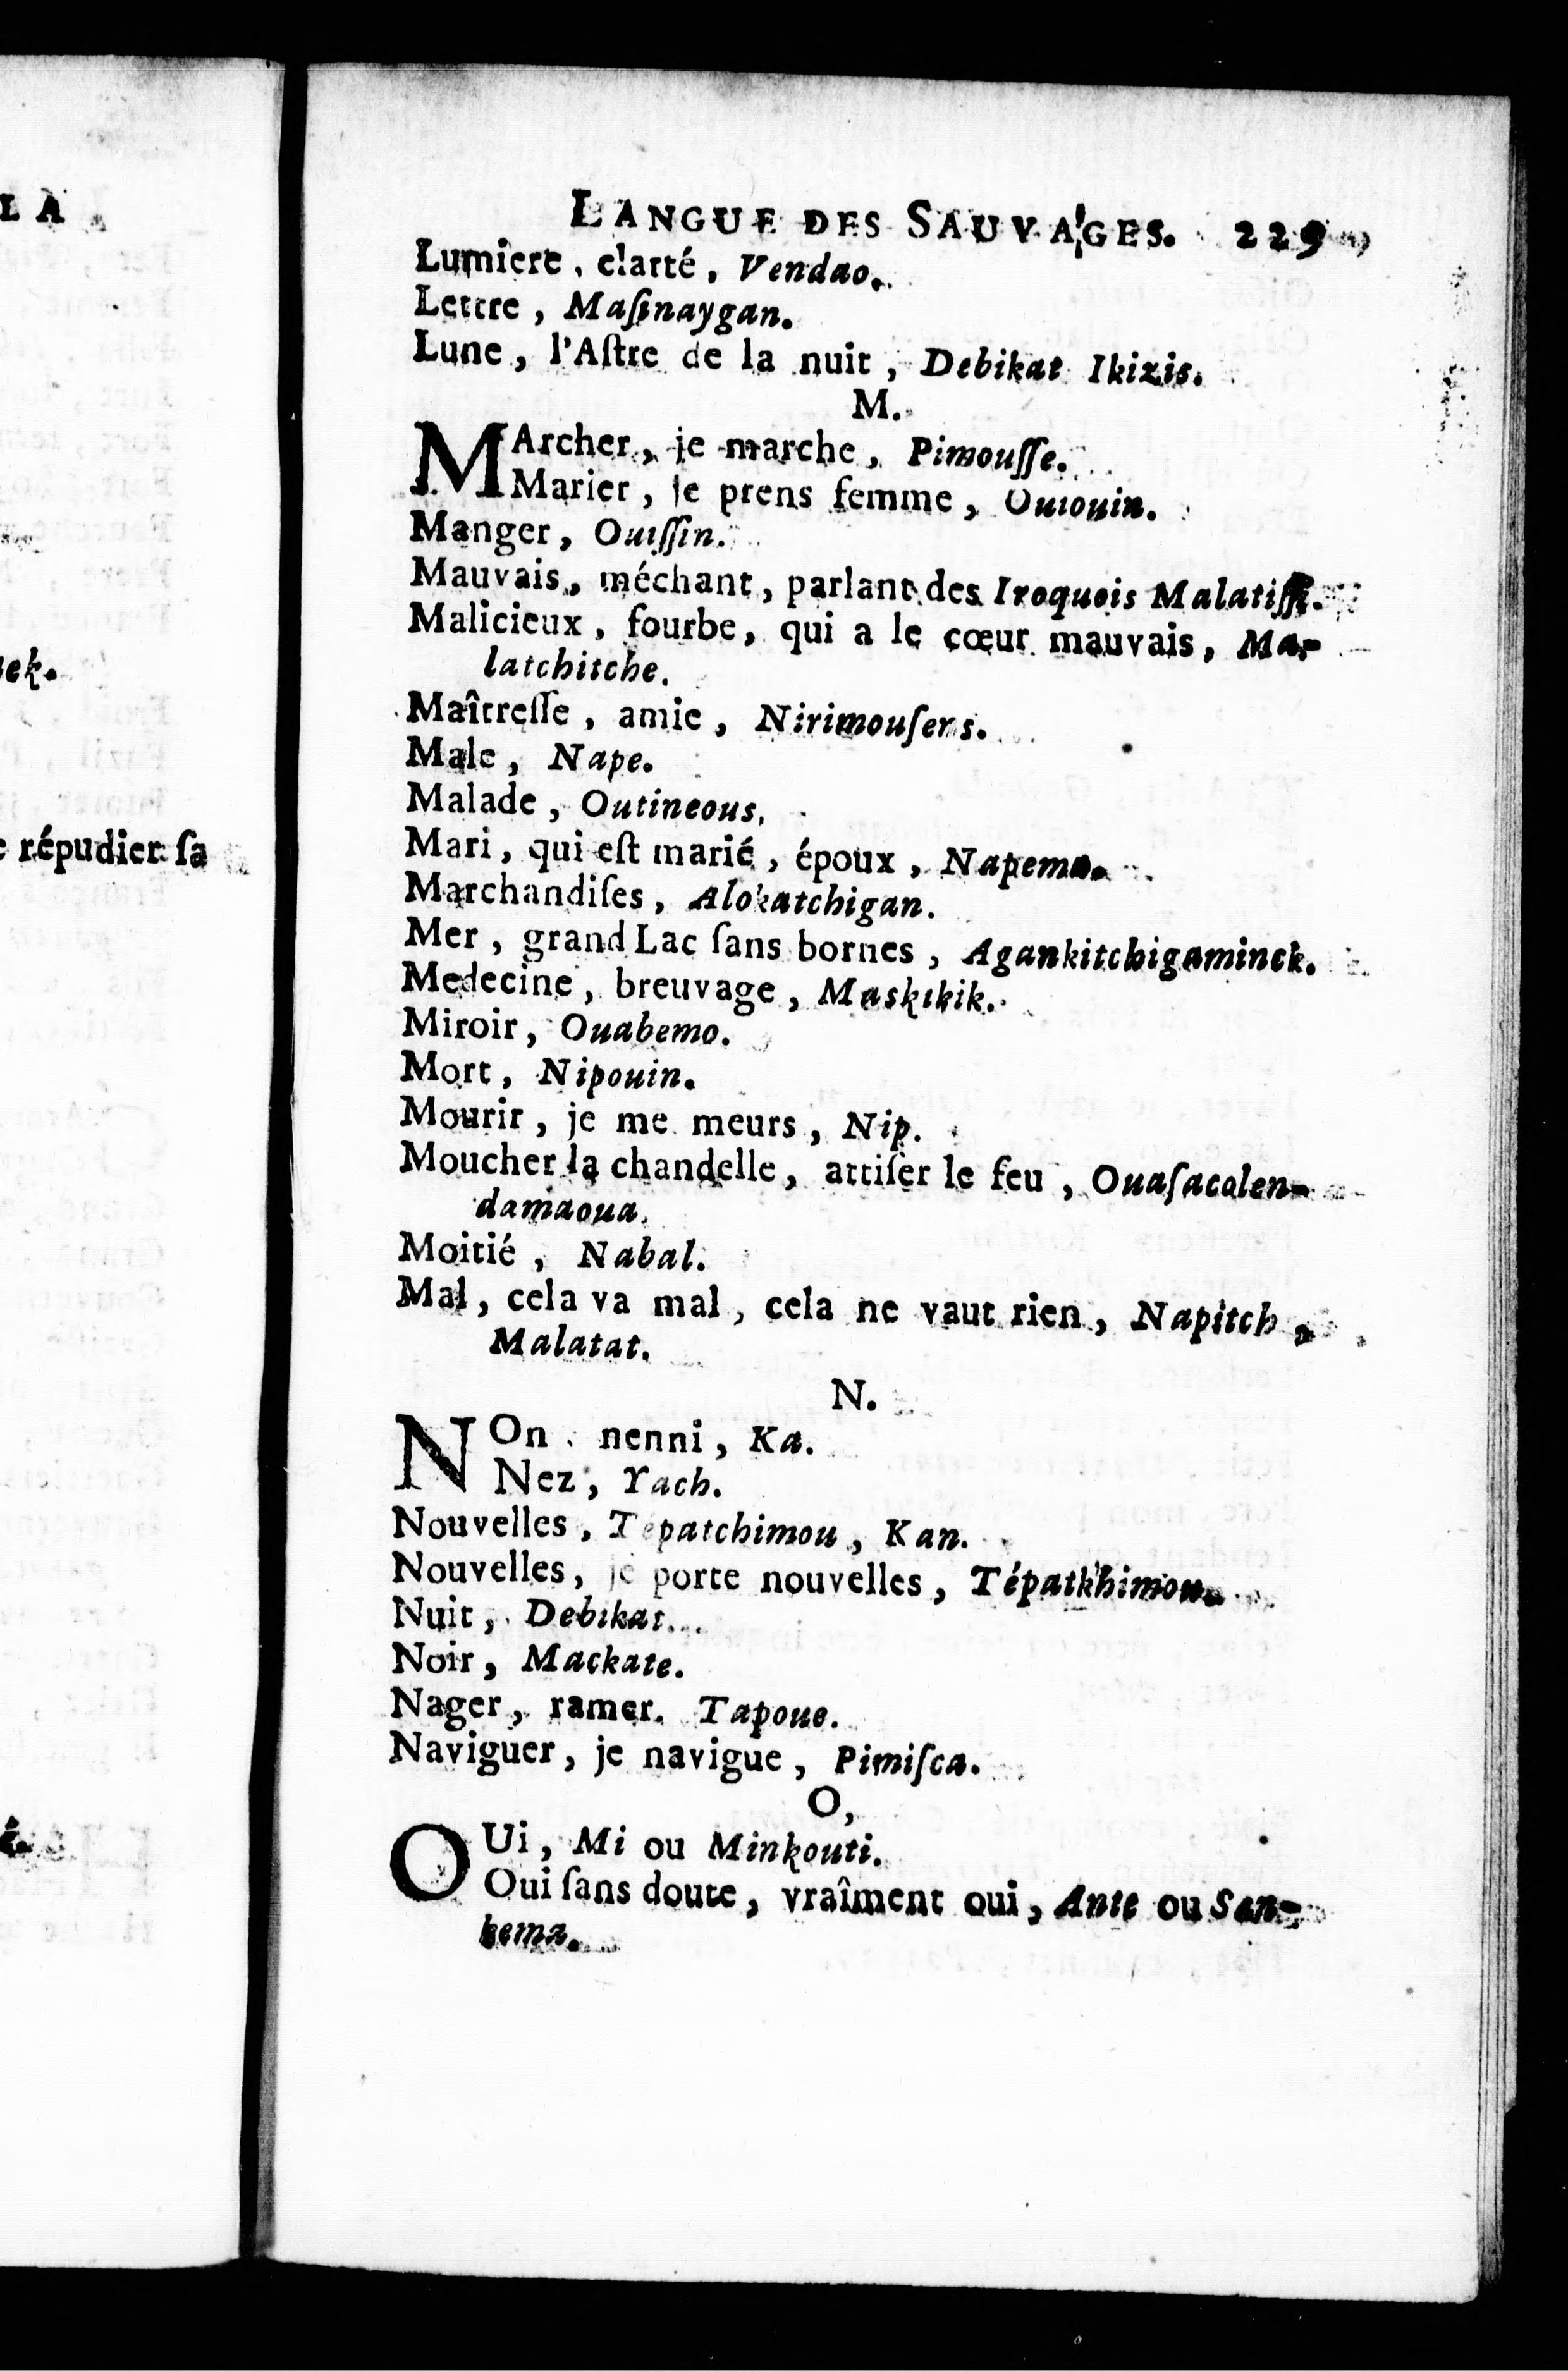 LA
ek.
répudier ſa
LANGUE DES SAUVAGES. 229
Lumiere, clarté, Vendao.
Lettre, Maſinaygan.
Lune, l'Aſtre de la nuit, Debikat Ikizis.
M.
MArcher, je marche, Pimouſſe.
Marier, je prens femme, Ouiouin.
Manger, Ouiſſin.
Mauvais, méchant, parlant des Iroquois Malatiſſi.
Malicieux, fourbe, qui a le cœur mauvais, Ma-
latchitche.
Maîtreſſe, amie, Nirimouſens.
Male, Nape.
Malade, Outineous.
Mari, qui eſt marié, époux, Napema.
Marchandiſes, Alokatchigan.
Mer, grand Lac ſans bornes, Agankitchigaminck.
Medecine, breuvage, Maskikik.
Miroir, Ouabemo.
Mort, Nipouin.
Mourir, je me meurs, Nip.
Moucher la chandelle, attiſer le feu, Ouaſacolen-
damaoua.
Moitié, Nabal.
Mal, cela va mal, cela ne vaut rien, Napitch,
Malatat.
N.
NOn nenni, Ka.
Nez, Yach.
Nouvelles, Tepatchimou, Kan.
Nouvelles, je porte nouvelles, Tépatkhimou.
Nuit, Debikat.
Noir, Mackate.
Nager, ramer. Tapoue.
Naviguer, je navigue, Pimiſca.
O,
OUi, Mi ou Minkouti.
Oui ſans doute, vraîment oui, Ante ou San-
kema.